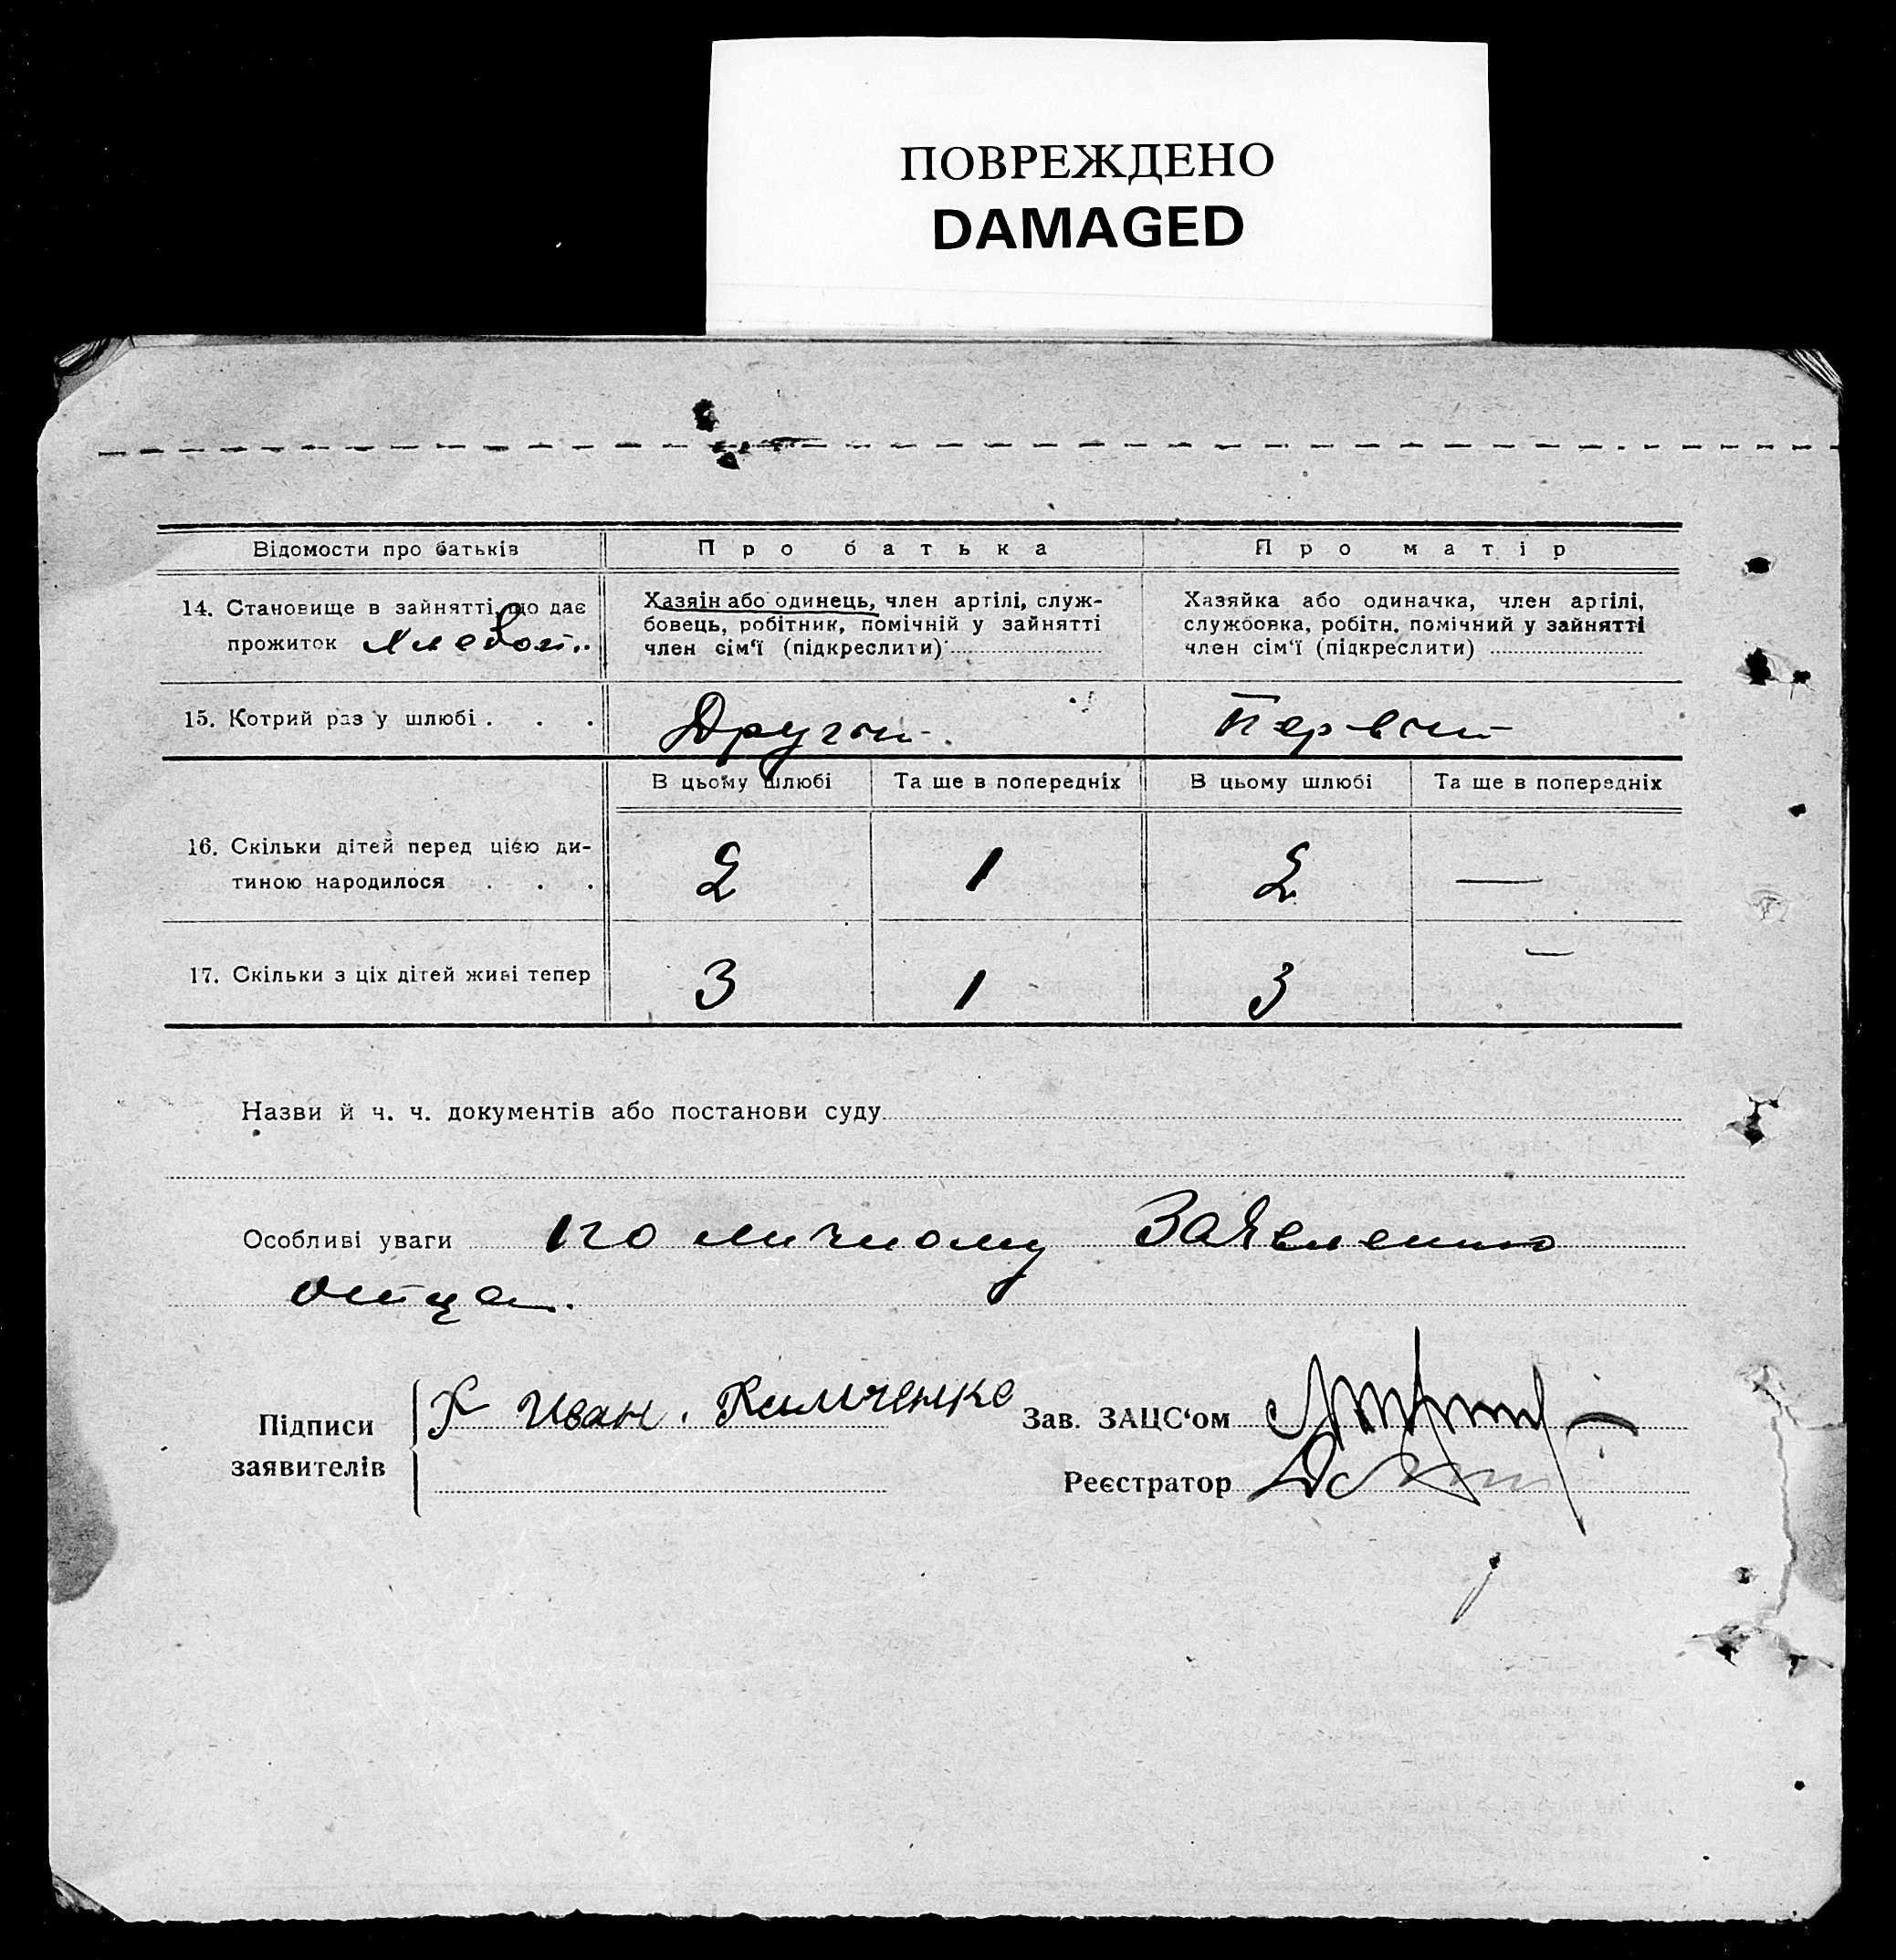 ПОВРЕЖДЕНО
DAMAGED
Відомости про батьків
Про батька
Про матір
14. Становище в зайнятті, що дає
прожиток
Хазяїн або одинець, член артілі, служ-
бовець, робітник, помічній у зайнятті
член сім‘ї (підкреслити)
Хазяйка або одиначка, член артілі,
службовка, робітн. помічний у зайнятті
член сім‘ї (підкреслити)
15. Котрий раз у шлюбі . . .
Другий
Первый
В цьому шлюбі
Та ше в попередніх
В цьому шлюбі
Та ще в попередніх
16. Скільки дітей перед цією ди-
тиною народилося . . .
2
1
2
—
17. Скільки з ціх дітей живі тепер
3
1
3
—
Назви й ч. ч. документів або постанови суду
Особливі уваги по личному Заявлению
отца.
Підписи
заявителів
К Иван.
Зав. ЗАЦС‘ом
Реєстратор